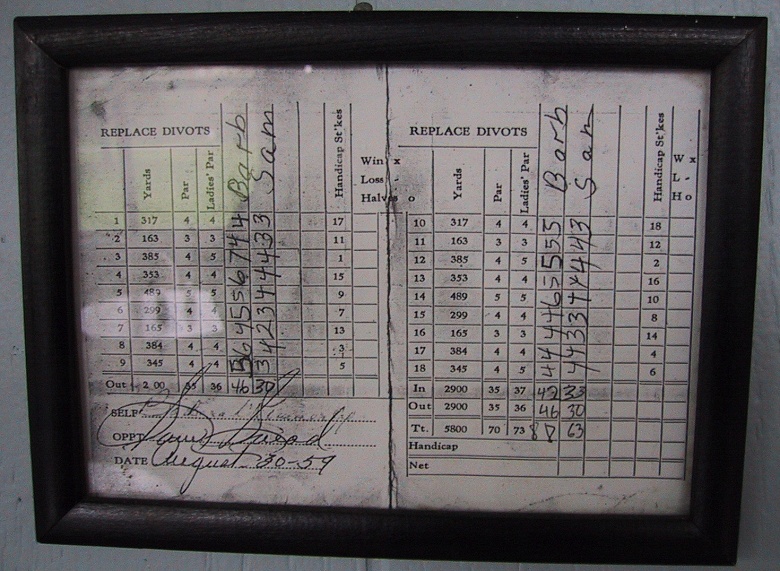 REPLACE DIVOTS
Yards Par Ladies' Par Barb Sam Handicap St'kes
Win x
Loss -
Halves o
1 317 4 4 4 3 17
2 163 3 3 4 3 11
3 385 4 5 7 4 1
4 353 4 4 6 4 15
5 489 5 5 5 4 9
6 299 4 4 5 3 7
7 165 3 3 4 2 13
8 384 4 4 6 4 3
9 345 4 4 5 3 5
Out 2 00 35 36 46 30
SELF
OPPT
DATE August 30-59
REPLACE DIVOTS
Yards Par Ladies' Par Barb Sam Handicap St'kes
W x
L -
H o
10 317 4 4 5 3 18
11 163 3 3 5 4 12
12 385 4 5 5 4 2
13 353 4 4 5 4 16
14 489 5 5 6 4 10
15 299 4 4 4 3 8
16 165 3 3 4 3 14
17 384 4 4 4 4 4
18 345 4 5 4 4 6
In 2900 35 37 42 33
Out 2900 35 36 46 30
Tt. 5800 70 73 88 63
Handicap
Net